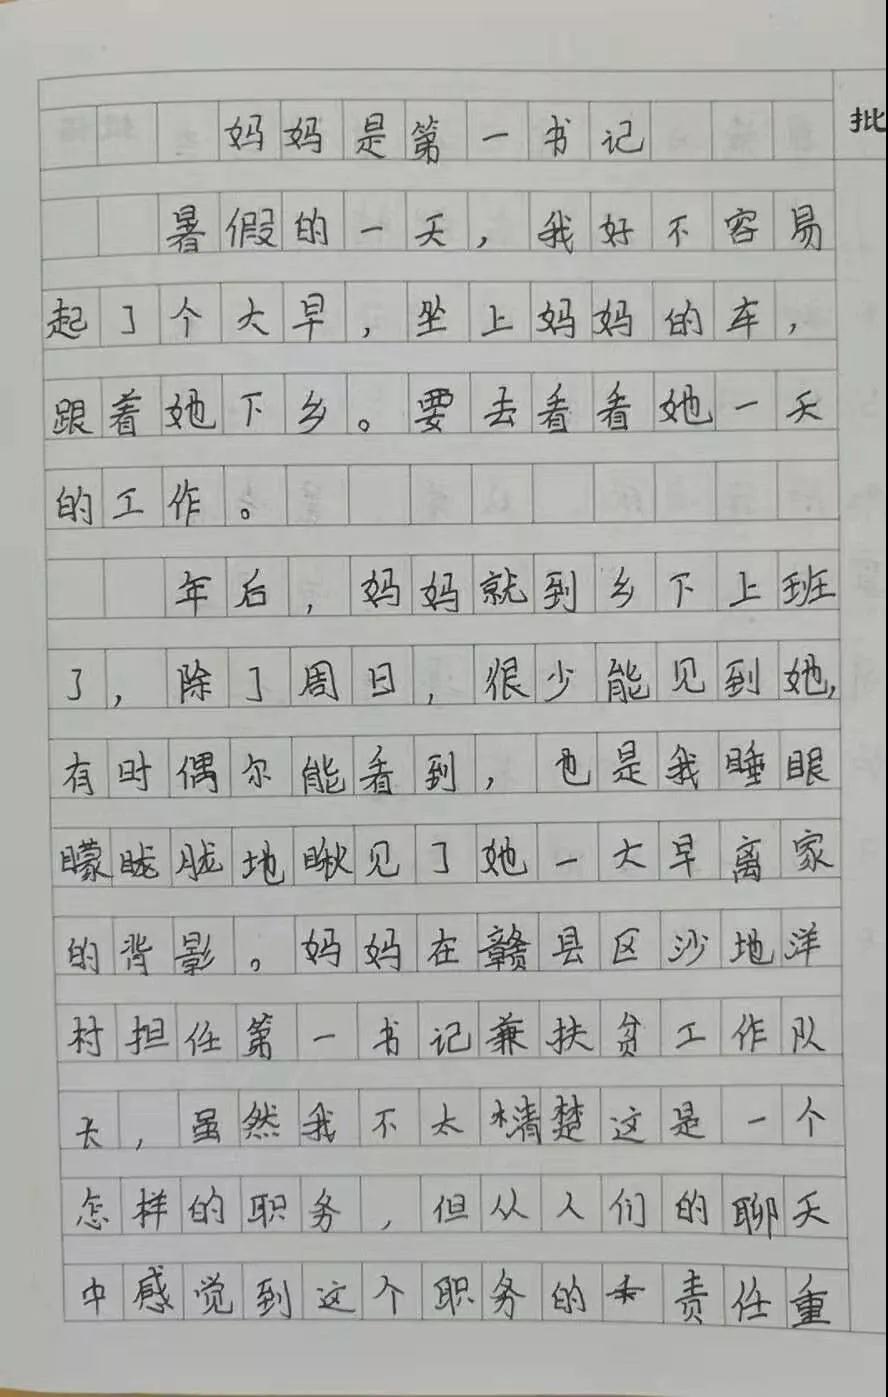 妈妈是第一书记
批
暑假的一天，我好不容易
起了个大早，坐上妈妈的车，
跟着她下乡。要去看看她一天
的工作。
年后，妈妈就到乡下上班
了，除了周日，很少能见到她，
有时偶尔能看到，也是我睡眼
朦胧胧地瞅见了她一大早离家
的背影。妈妈在赣县区沙地洋
村担任第一书记兼扶贫工作队
长，虽然我不太清楚这是一个
怎样的职务，但从人们的聊天
中感觉到这个职务的责任重